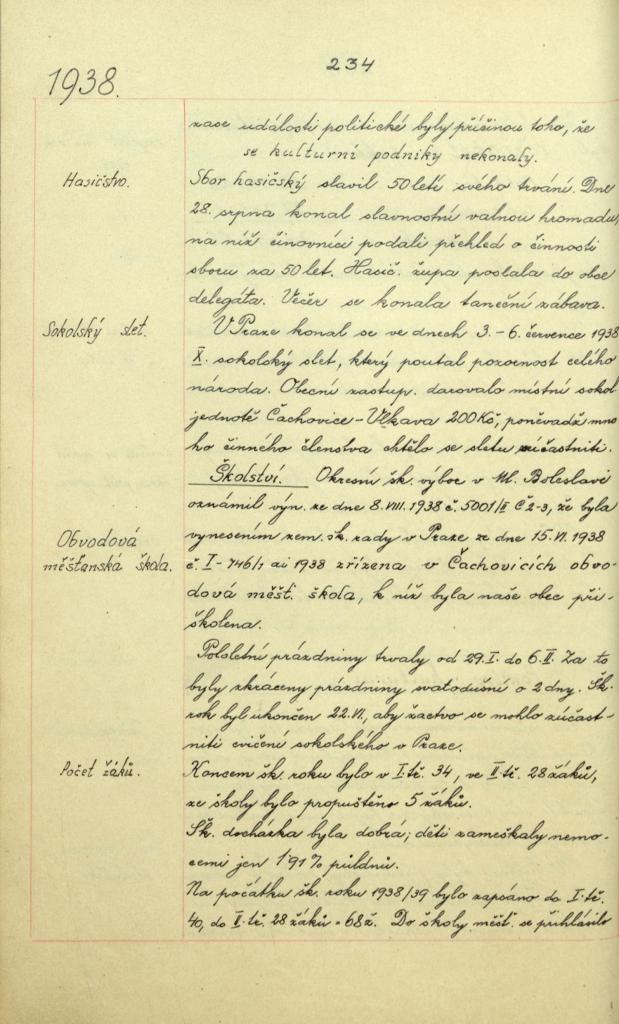 234
1938.
zase události politické byly příčinou toho, že
se kulturní podniky nekonaly.
Hasičstvo.
Sbor hasičský slavil 50letí svého trvání. Dne
28. srpna konal slavnostní valnou hromadu,
na níž činovníci podali přehled o činnosti
sboru za 50 let. Hasič. župa poslala do obce
delegáta. Večer se konala taneční zábava.
Sokolský slet.
V Praze konal se ve dnech 3.-6. července 1938
X. sokolský slet, který poutal pozornost celého
národa. Obecní zastup. darovalo místní sokol
jednotě Čachovice-Vlkava 200 Kč, poněvadž mno
ho činného členstva chtělo se sletu zúčastniti.
Školství. Okresní šk. výbor v Ml. Boleslavi
oznámil výn. ze dne 8. VIII. 1938 č. 5001/II Č 2-3, že byla
Obvodová
měšťanská škola.
vynesením zem. šk. rady v Praze ze dne 15. VI. 1938
č. I-746/1 ai 1938 zřízena v Čachovicích obvo-
dová měšť. škola, k níž byla naše obec při-
školena.
Pololetní prázdniny trvaly od 29. I. do 6. II. Za to
byly zkráceny prázdniny svatodušní o 2 dny. Šk.
rok byl ukončen 22. VI., aby žactvo se mohlo zúčast-
niti cvičení sokolského v Praze.
Počet žáků.
Koncem šk. roku bylo v I. tř. 34, ve II. tř. 28 žáků,
ze školy bylo propuštěno 5 žáků.
Šk. docházka byla dobrá; děti zameškaly nemo-
cemi jen 1'91% půldnů.
Na počátku šk. roku 1938/39 bylo zapsáno do I. tř.
40, do II. tř. 28 žáků = 68 ž. Do školy měšť. se přihlásilo